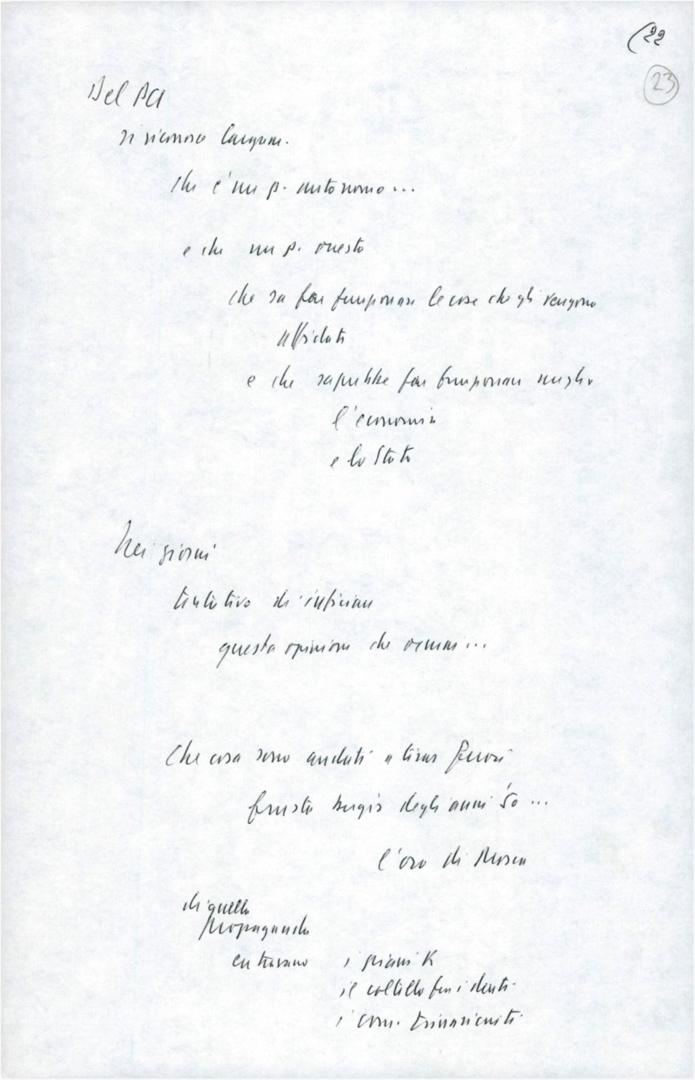 (22
23
Del PCI
si riconosce largam.
che è un p. autonomo...
e che un p. onesto
che sa far funzionare le cose che gli vengono
affidate
e che saprebbe far funzionare meglio
l'economia
e lo Stato
Nei giorni
tentativo di inficiare
questa opinione che ormai...
Che cosa sono andati a tirar fuori
frusta degli anni '50...
l'oro di Mosca
di quella
propaganda
entravano i piani K
il coltello fra i denti
i com. trinariciuti